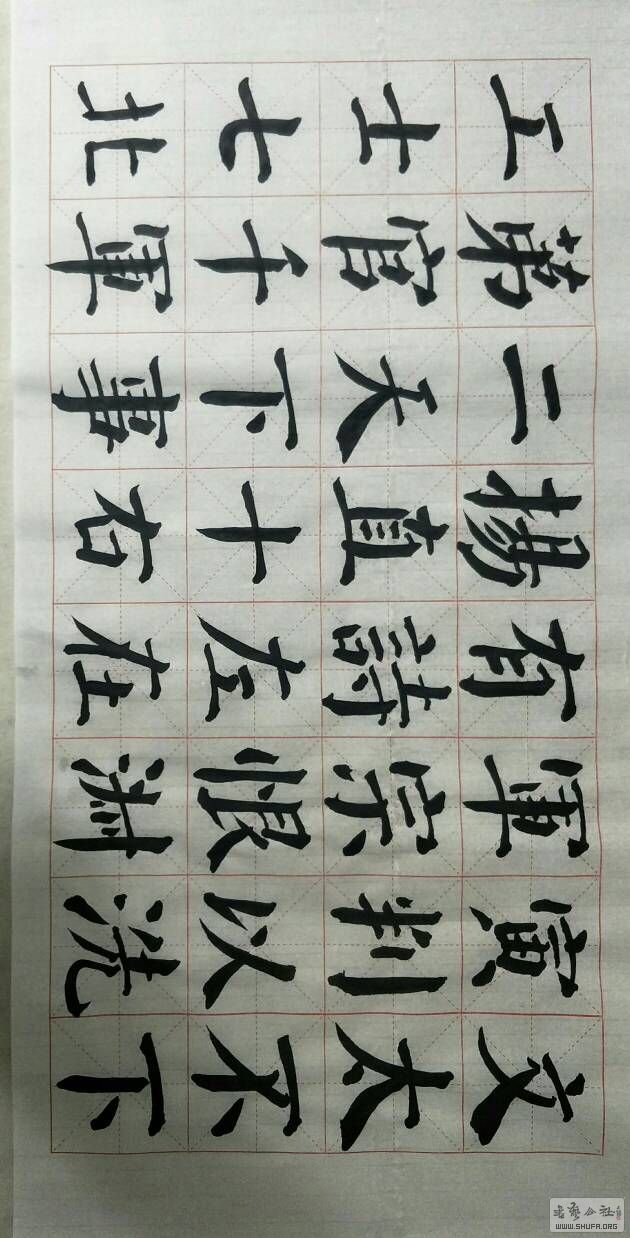 文太不下
寅判以洗
軍宗恨淵
有詩左在
揚直十右
二天下事
第官千軍
工士七北
書藝公社
WWW.SHUFA.ORG